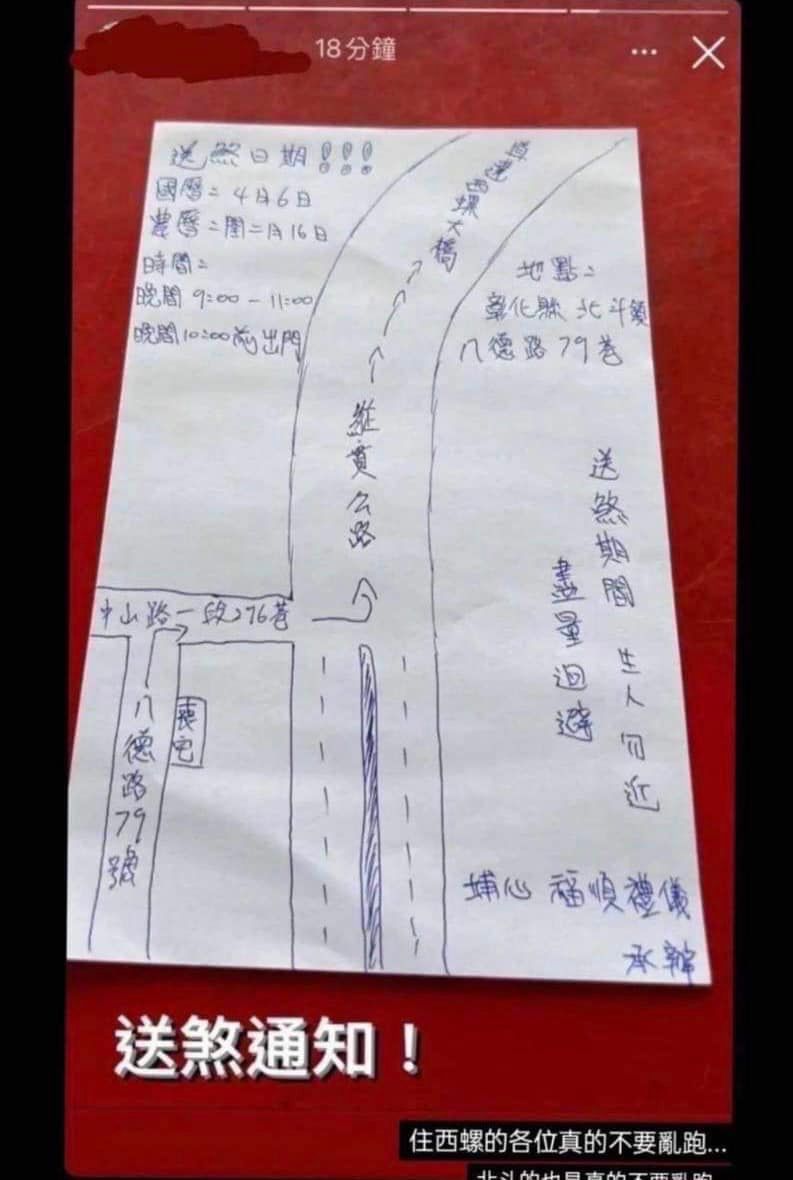 18分鐘
送煞日期！！！
國曆：4月6日
農曆：閏二月16日
時間：
晚間 9:00 - 11:00
晚間10:00前出門
導達西螺大橋
地點：
彰化縣 北斗鎮
八德路79巷
縱貫公路
送煞期間 生人勿近
盡量迴避
中山路一段276巷
八德路79號
喪宅
埔心 福順禮儀
承辦
送煞通知！
住西螺的各位真的不要亂跑...
北斗的也是真的不要亂跑